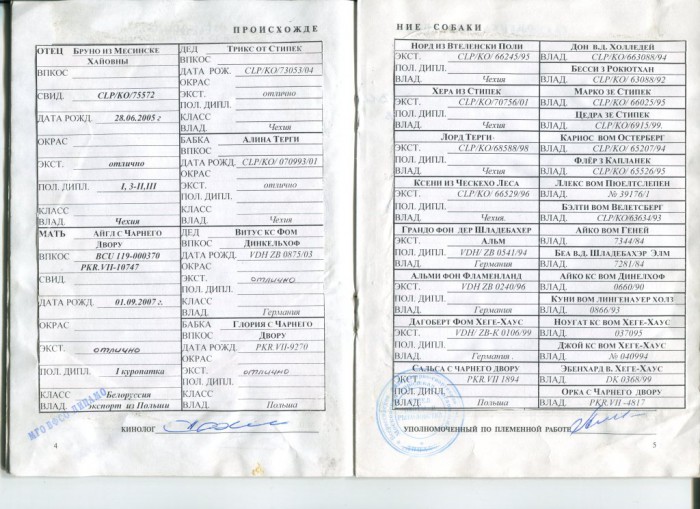 ПРОИСХОЖДЕ
ОТЕЦ БРУНО ИЗ МЕСИНСКЕ
ХАЙОВНЫ
ВПКОС
СВИД. CLP/KO/75572
ДАТА РОЖД 28.06.2005 г
ОКРАС
ЭКСТ. отлично
ПОЛ. ДИПЛ. I, 3-II,III
КЛАСС
ВЛАД. Чехия
МАТЬ АЙГЛ С ЧАРНЕГО
ДВОРУ
ВПКОС BCU 119-000370
PKR.VII-10747
СВИД.
ДАТА РОЖД. 01.09.2007 г.
ОКРАС
ЭКСТ. отлично
ПОЛ. ДИПЛ I куропатка
КЛАСС Белоруссия
ВЛАД. экспорт из Польши
ДЕД ТРИКС ОТ СТИПЕК
ВПКОС
ДАТА РОЖ. CLP/KO/73053/04
ОКРАС
ЭКСТ. отлично
ПОЛ. ДИПЛ.
КЛАСС
ВЛАД. Чехия
БАБКА АЛИНА ТЕРГИ
ВПКОС
ДАТА РОЖД. CLP/KO/ 070993/01
ОКРАС
ЭКСТ. отлично
ПОЛ. ДИПЛ.
КЛАСС
ВЛАД. Чехия
ДЕД ВИТУС КС ФОМ
ВПКОС ДИНКЕЛЬХОФ
ДАТА РОЖД. VDH ZB 0875/03
ОКРАС
ЭКСТ. отлично
ПОЛ. ДИПЛ.
КЛАСС
ВЛАД. Германия
БАБКА ГЛОРИЯ С ЧАРНЕГО
ВПКОС ДВОРУ
ДАТА РОЖД PKR.VII-9270
ОКРАС
ЭКСТ. отлично
ПОЛ. ДИПЛ.
КЛАСС
ВЛАД. Польша
КИНОЛОГ
4
НИЕ СОБАКИ
НОРД ИЗ ВТЕЛЕНСКИ ПОЛИ
ЭКСТ. CLP/KO/ 66245/95
ПОЛ. ДИПЛ.
ВЛАД. Чехия
ХЕРА ИЗ СТИПЕК
ЭКСТ. CLP/KO/70756/01
ПОЛ. ДИПЛ.
ВЛАД. Чехия
ЛОРД ТЕРГИ
ЭКСТ. CLP/KO/68588/98
ПОЛ. ДИПЛ.
ВЛАД. Чехия
КСЕНИ ИЗ ЧЕСКЕХО ЛЕСА
ЭКСТ. CLP/KO/ 66529/96
ПОЛ. ДИПЛ.
ВЛАД. Чехия.
ГРАНДО ФОН ДЕР ШЛАДЕБАХЕР
АЛЬМ
ЭКСТ. VDH/ ZB 0541/94
ПОЛ. ДИПЛ.
ВЛАД. Германия
АЛЬМИ ФОН ФЛАМЕНЛАНД
ЭКСТ. VDH ZB 0240/96
ПОЛ. ДИПЛ.
ВЛАД. Германия
ДАГОБЕРТ ФОМ ХЕГЕ-ХАУС
ЭКСТ. VDH/ ZB-K 0106/99
ПОЛ. ДИПЛ.
ВЛАД. Германия .
САЛЬСА С ЧАРНЕГО ДВОРУ
ЭКСТ. PKR.VII 1894
ПОЛ. ДИПЛ.
ВЛАД Польша
ДОН В.Д. ХОЛЛЕДЕЙ
ВЛАД. CLP/KO/663088/94
БЕССИ З РОКЮТХАН
ВЛАД. CLP/KO/ 63088/92
МАРКО ЗЕ СТИПЕК
ВЛАД. CLP/KO/ 66025/95
ЦЕДРА ЗЕ СТИПЕК
ВЛАД. CLP/KO/6915/99.
КАРНОС ВОМ ОСТЕРБЕРГ
ВЛАД. CLP/KO/ 65207/94
ФЛЁР З КАПЛАНЕК
ВЛАД. CLP/KO/ 65526/95
ЛЛЕКС ВОМ ПЮЕЛТСЛЕПЕН
ВЛАД. № 39176/1
БЭЛТИ ВОМ ВЕЛЕТСБЕРГ
ВЛАД. CLP/KO/63634/93
АЙКО ВОМ ГЕНЕЙ
ВЛАД. 7344/84
БЕА В.Д. ШЛАДЕБАХЭР ЭЛМ
ВЛАД. 7281/84
АЙКО КС ВОМ ДИНЕЛХОФ
ВЛАД. 0660/90
КУНИ ВОМ ЛИНГЕНАУЕР ХОЛЗ
ВЛАД. 0866/93
НОУГАТ КС ВОМ ХЕГЕ-ХАУС
ВЛАД. 037095
ДЖОЙ КС ВОМ ХЕГЕ-ХАУС
ВЛАД. № 040994
ЭБЕНХАРД В. ХЕГЕ-ХАУС
ВЛАД. DK 0368/99
ОРКА С ЧАРНЕГО ДВОРУ
ВЛАД. PKR.VII -4817
УПОЛНОМОЧЕННЫЙ ПО ПЛЕМЕННОЙ РАБОТЕ
5